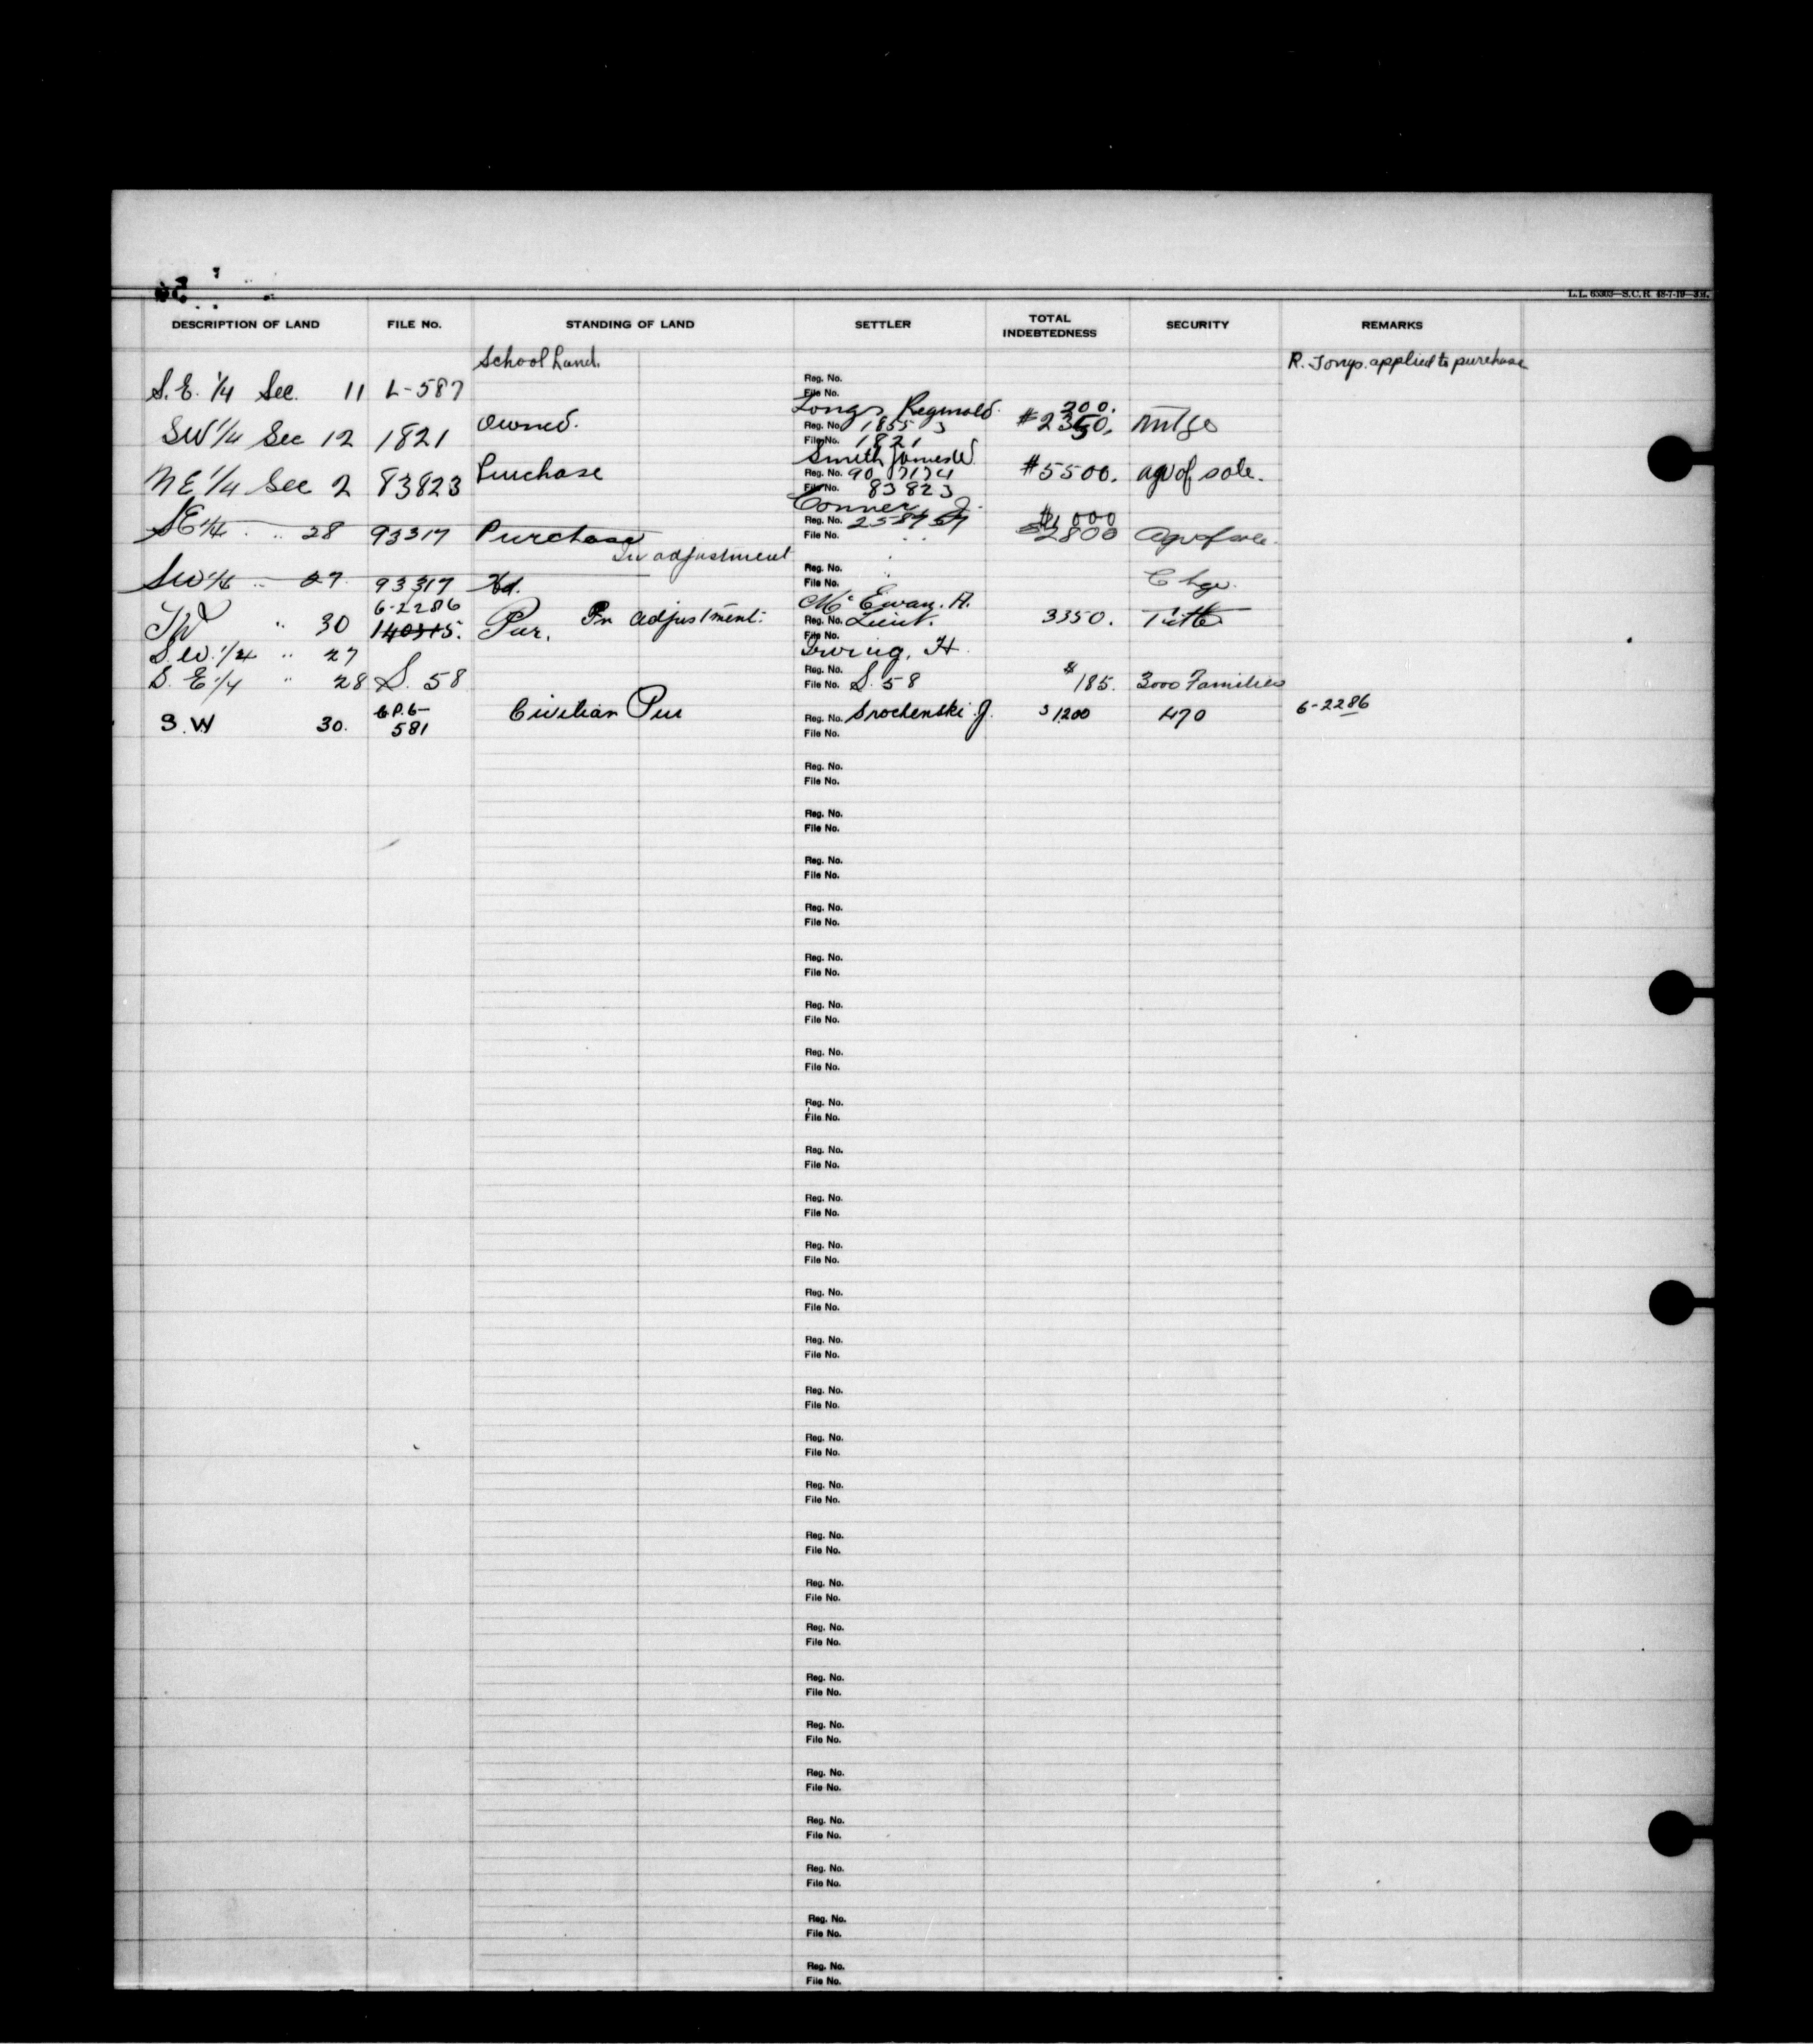 L.L. 65303—S.C.R. 48-7-19—3M.
DESCRIPTION OF LAND FILE No. STANDING OF LAND SETTLER TOTAL INDEBTEDNESS SECURITY REMARKS
School Land. R. Tongs. applied to purchase
S.E. 1/4 Sec. 11 L-587 Reg. No.
File No.
Tongs, Reginald. 200.
SW 1/4 Sec 12 1821 Owned. Reg. No. 18553 #2350. mtge
File No. 1821
Smith James W.
NE 1/4 Sec 2 83823 Purchase Reg. No. #5500. agv of sale.
File No. 83823
Conner, J. 1000
SE 1/4 " 28 93317 Purchase Reg. No. 2800 agv of sale.
File No. "
In adjustment
SW 1/4 " 27 93317 Hd. Reg. No. Chge.
File No.
6-2286 McEwan. A.
SW " 30 140315. Pur. In adjustment. Reg. No. Lieut. 3350. Title
File No.
S.W. 1/4 " 27 Irving, H.
Reg. No.
S. E 1/4 " 28 S. 58 File No. S. 58 $185. 3000 Families
S.W 30. 6 P.6- 581 Civilian Pur Reg. No. Srochenski J. $1200 470 6-2286
File No.
Reg. No.
File No.
Reg. No.
File No.
Reg. No.
File No.
Reg. No.
File No.
Reg. No.
File No.
Reg. No.
File No.
Reg. No.
File No.
Reg. No.
File No.
Reg. No.
File No.
Reg. No.
File No.
Reg. No.
File No.
Reg. No.
File No.
Reg. No.
File No.
Reg. No.
File No.
Reg. No.
File No.
Reg. No.
File No.
Reg. No.
File No.
Reg. No.
File No.
Reg. No.
File No.
Reg. No.
File No.
Reg. No.
File No.
Reg. No.
File No.
Reg. No.
File No.
Reg. No.
File No.
Reg. No.
File No.
Reg. No.
File No.